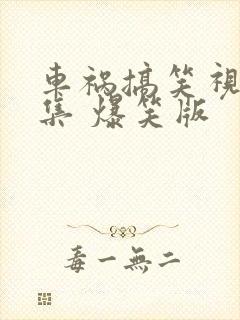 車祸搞笑視
集 爆笑版
毒一無二